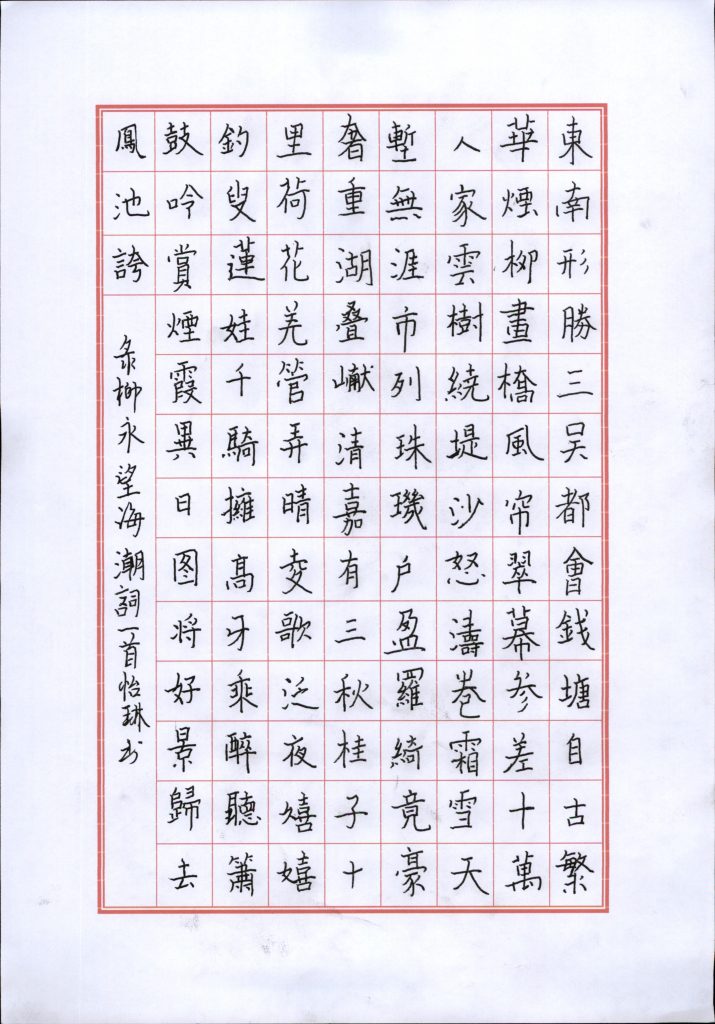 東南形勝三吴都會錢塘自古繁
華煙柳畫橋風帘翠幕参差十萬
人家雲樹繞堤沙怒濤卷霜雪天
塹無涯市列珠璣户盈羅綺竟豪
奢重湖叠巘清嘉有三秋桂子十
里荷花羌管弄晴夌歌泛夜嬉嬉
釣叟蓮娃千騎擁高牙乘醉聽簫
鼓吟賞煙霞異日图将好景歸去
鳳池誇
录柳永望海潮詞一首怡琳书